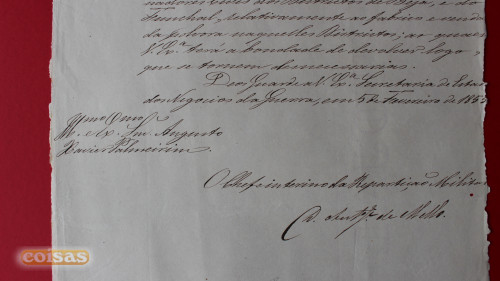 Districtos de Beja, e do
Funchal, relativamente ao fabrico e venda
da polvora naquelles Districtos; as quaes
V. Exª. terá a bondade de devolver logo
que se tornem desnecessarias.
Deos Guarde a V. Exª. Secretaria de Estado
dos Negocios da Guerra, em 5 de Fevereiro de 185
Illmo. Exmo.
Augusto
Xavier Palmeirim.
O Chefe interino da Repartição Milit
de Mello.
coisas